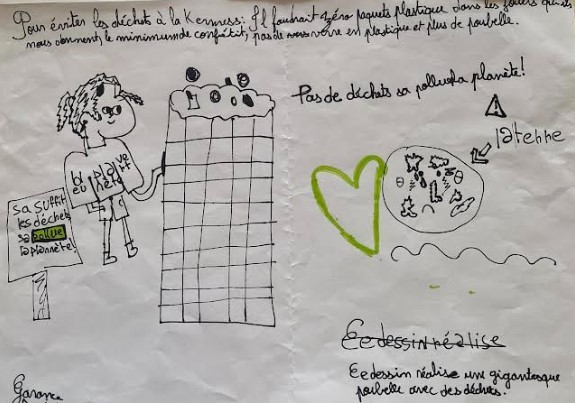 Pour éviter les déchets à la Kermess: Il faudrait zéro paquets plastique dans les
nous donnent, le minimum de confétit, pas de verre en plastique et plus de poubelle.
Pas de déchets sa pollue la planète!
la terre
bleu planète vert
sa suffit
les déchets
sa pollue
la planète!
Ce dessin réalise
Ce dessin réalise une gigantesque
poubelle avec des déchets.
Garance